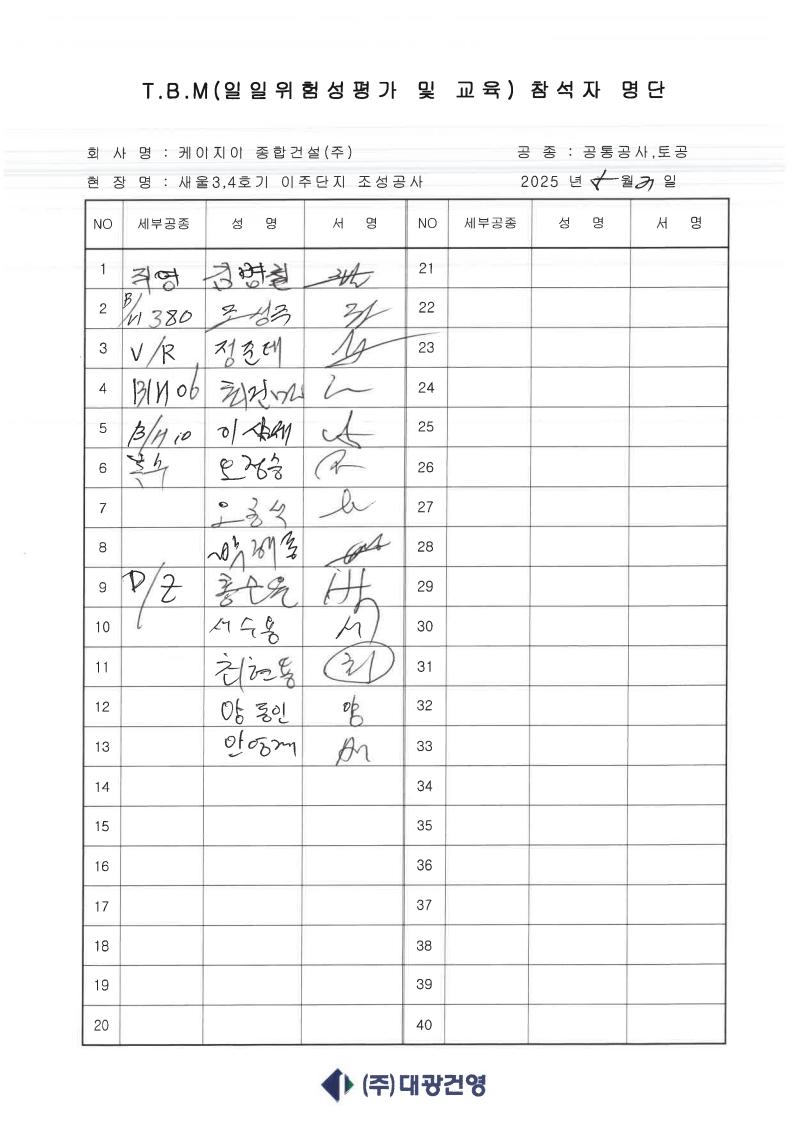 T.B.M(일일위험성평가 및 교육) 참석자 명단
회 사 명 : 케이지이 종합건설(주) 공 종 : 공통공사,토공
현 장 명 : 새울3,4호기 이주단지 조성공사 2025 년 월 일
NO 세부공종 성 명 서 명 NO 세부공종 성 명 서 명
1 직영 김병철 21
2 B/H 380 조성주 22
3 V/R 정준대 23
4 B/H 06 24
5 B/H 10 25
6 오정승 26
7 27
8 28
9 D/Z 29
10 서수용 서 30
11 최현통 최 31
12 양동인 양 32
13 안영재 33
14 34
15 35
16 36
17 37
18 38
19 39
20 40
(주)대광건영